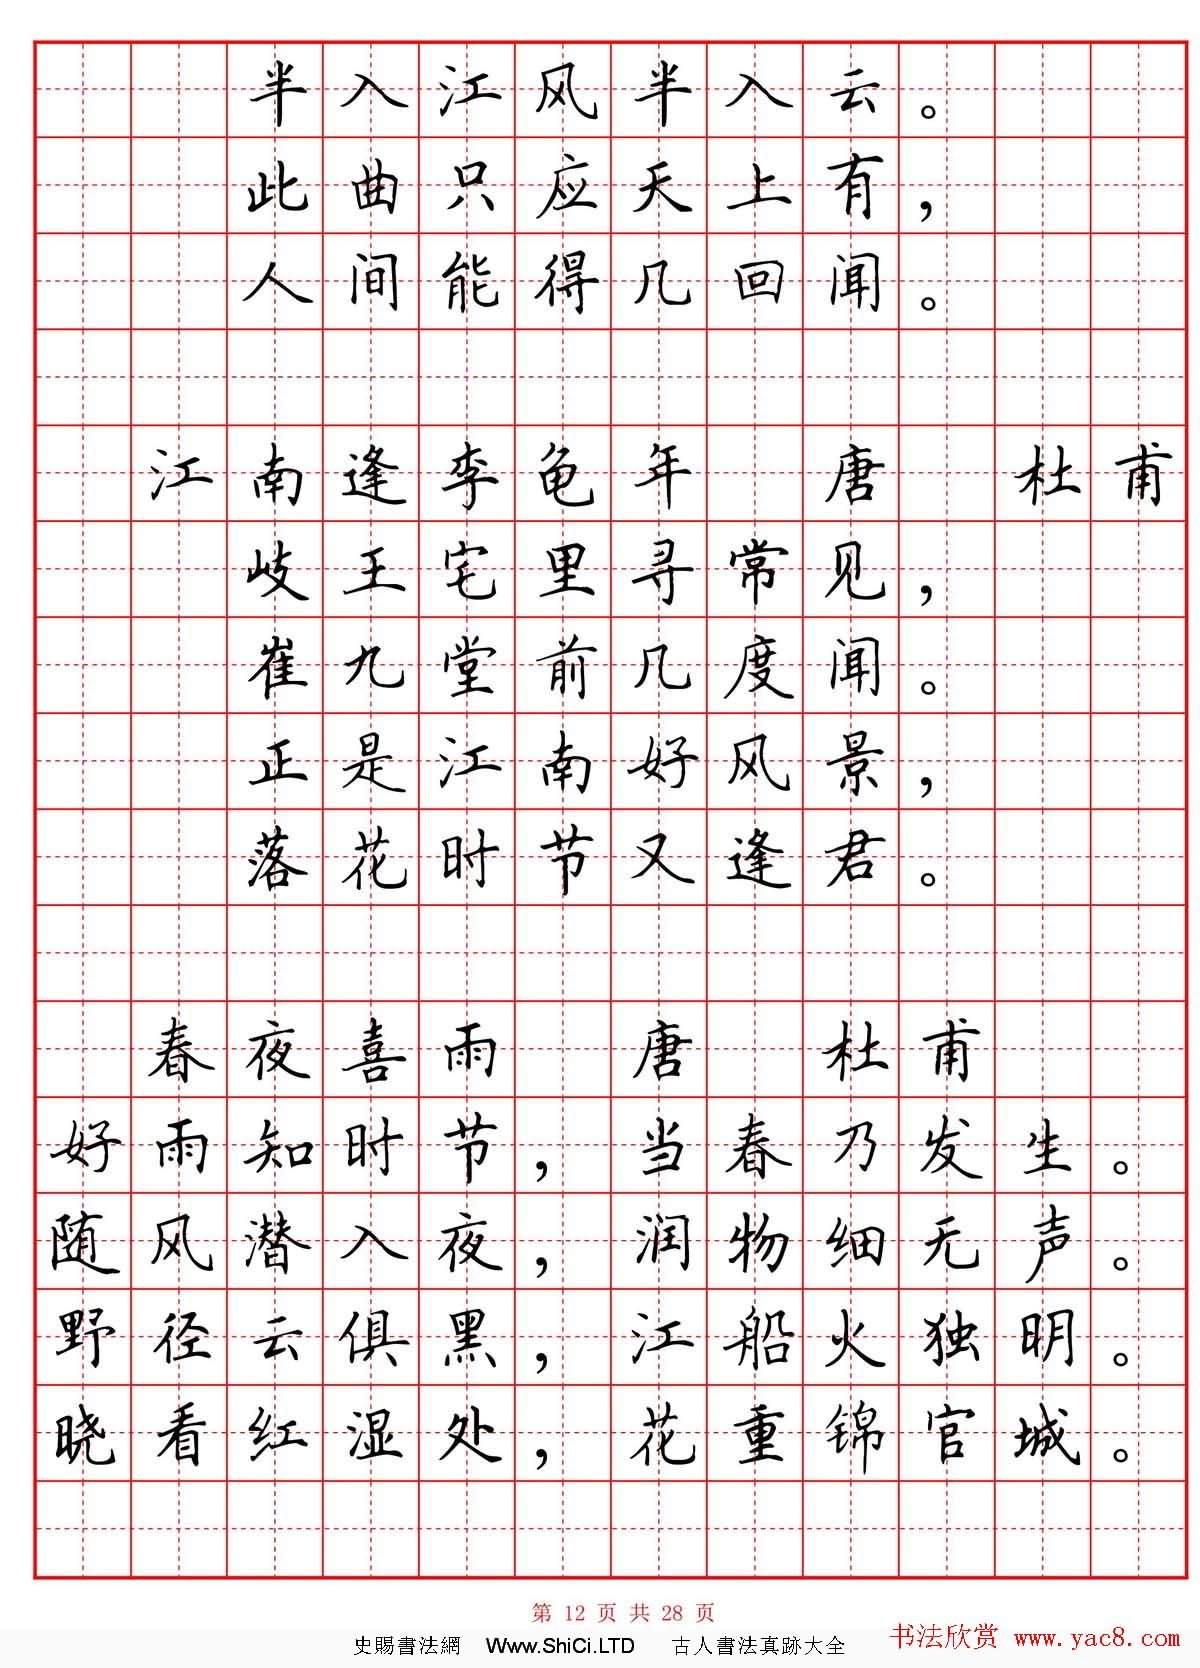 半入江风半入云。
此曲只应天上有，
人间能得几回闻。
江南逢李龟年 唐 杜甫
岐王宅里寻常见，
崔九堂前几度闻。
正是江南好风景，
落花时节又逢君。
春夜喜雨 唐 杜甫
好雨知时节，当春乃发生。
随风潜入夜，润物细无声。
野径云俱黑，江船火独明。
晓看红湿处，花重锦官城。
第 12 页 共 28 页
史賜書法網 Www.ShiCi.LTD 古人書法真跡大全
书法欣赏 www.yac8.com